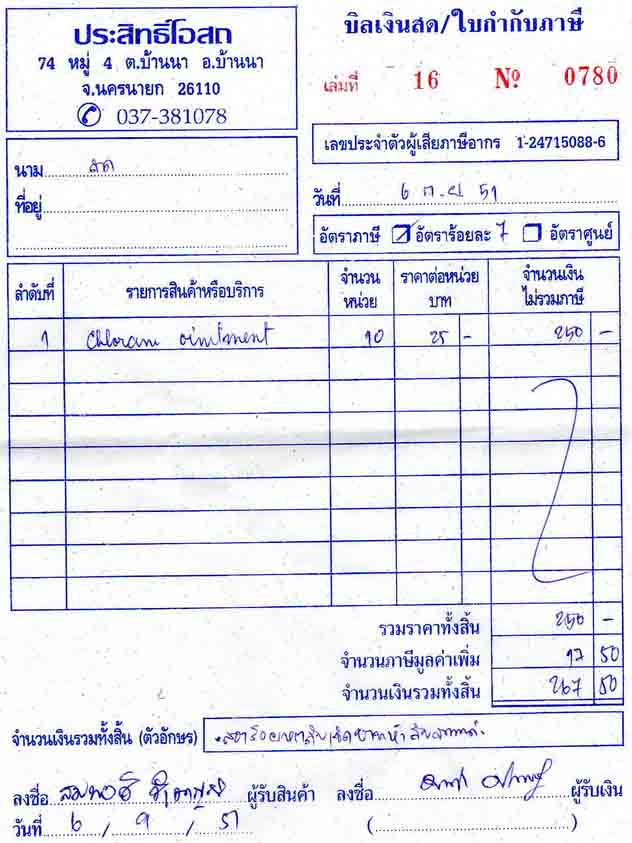 ประสิทธิ์โอสถ
74 หมู่ 4 ต.บ้านนา อ.บ้านนา
จ.นครนายก 26110
037-381078
บิลเงินสด/ใบกำกับภาษี
เล่มที่ 16 № 0780
เลขประจำตัวผู้เสียภาษีอากร 1-24715088-6
นาม สด
ที่อยู่
วันที่ 6 ก.ย 51
อัตราภาษี อัตราร้อยละ 7 อัตราศูนย์
ลำดับที่ รายการสินค้าหรือบริการ จำนวนหน่วย ราคาต่อหน่วย บาท จำนวนเงินไม่รวมภาษี
1 Chloram ointment 10 25 - 250 -
รวมราคาทั้งสิ้น 250 -
จำนวนภาษีมูลค่าเพิ่ม 17 50
จำนวนเงินรวมทั้งสิ้น 267 50
จำนวนเงินรวมทั้งสิ้น (ตัวอักษร) สองร้อยหกสิบเจ็ดบาทห้าสิบสตางค์
ลงชื่อ ผู้รับสินค้า ลงชื่อ ผู้รับเงิน
วันที่ 6 / 9 / 51 ( )